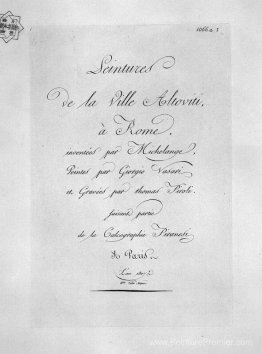 1066 a 1
Peintures
de la Ville Altoviti,
à Rome,
inventées par Michelange,
Peintes par Giorgio Vasari
et Gravées par thomas Piroli.
faisant partie
de la Calcographie Piranesi
à Paris.
L'an 1807
www.PeinturePremier.com